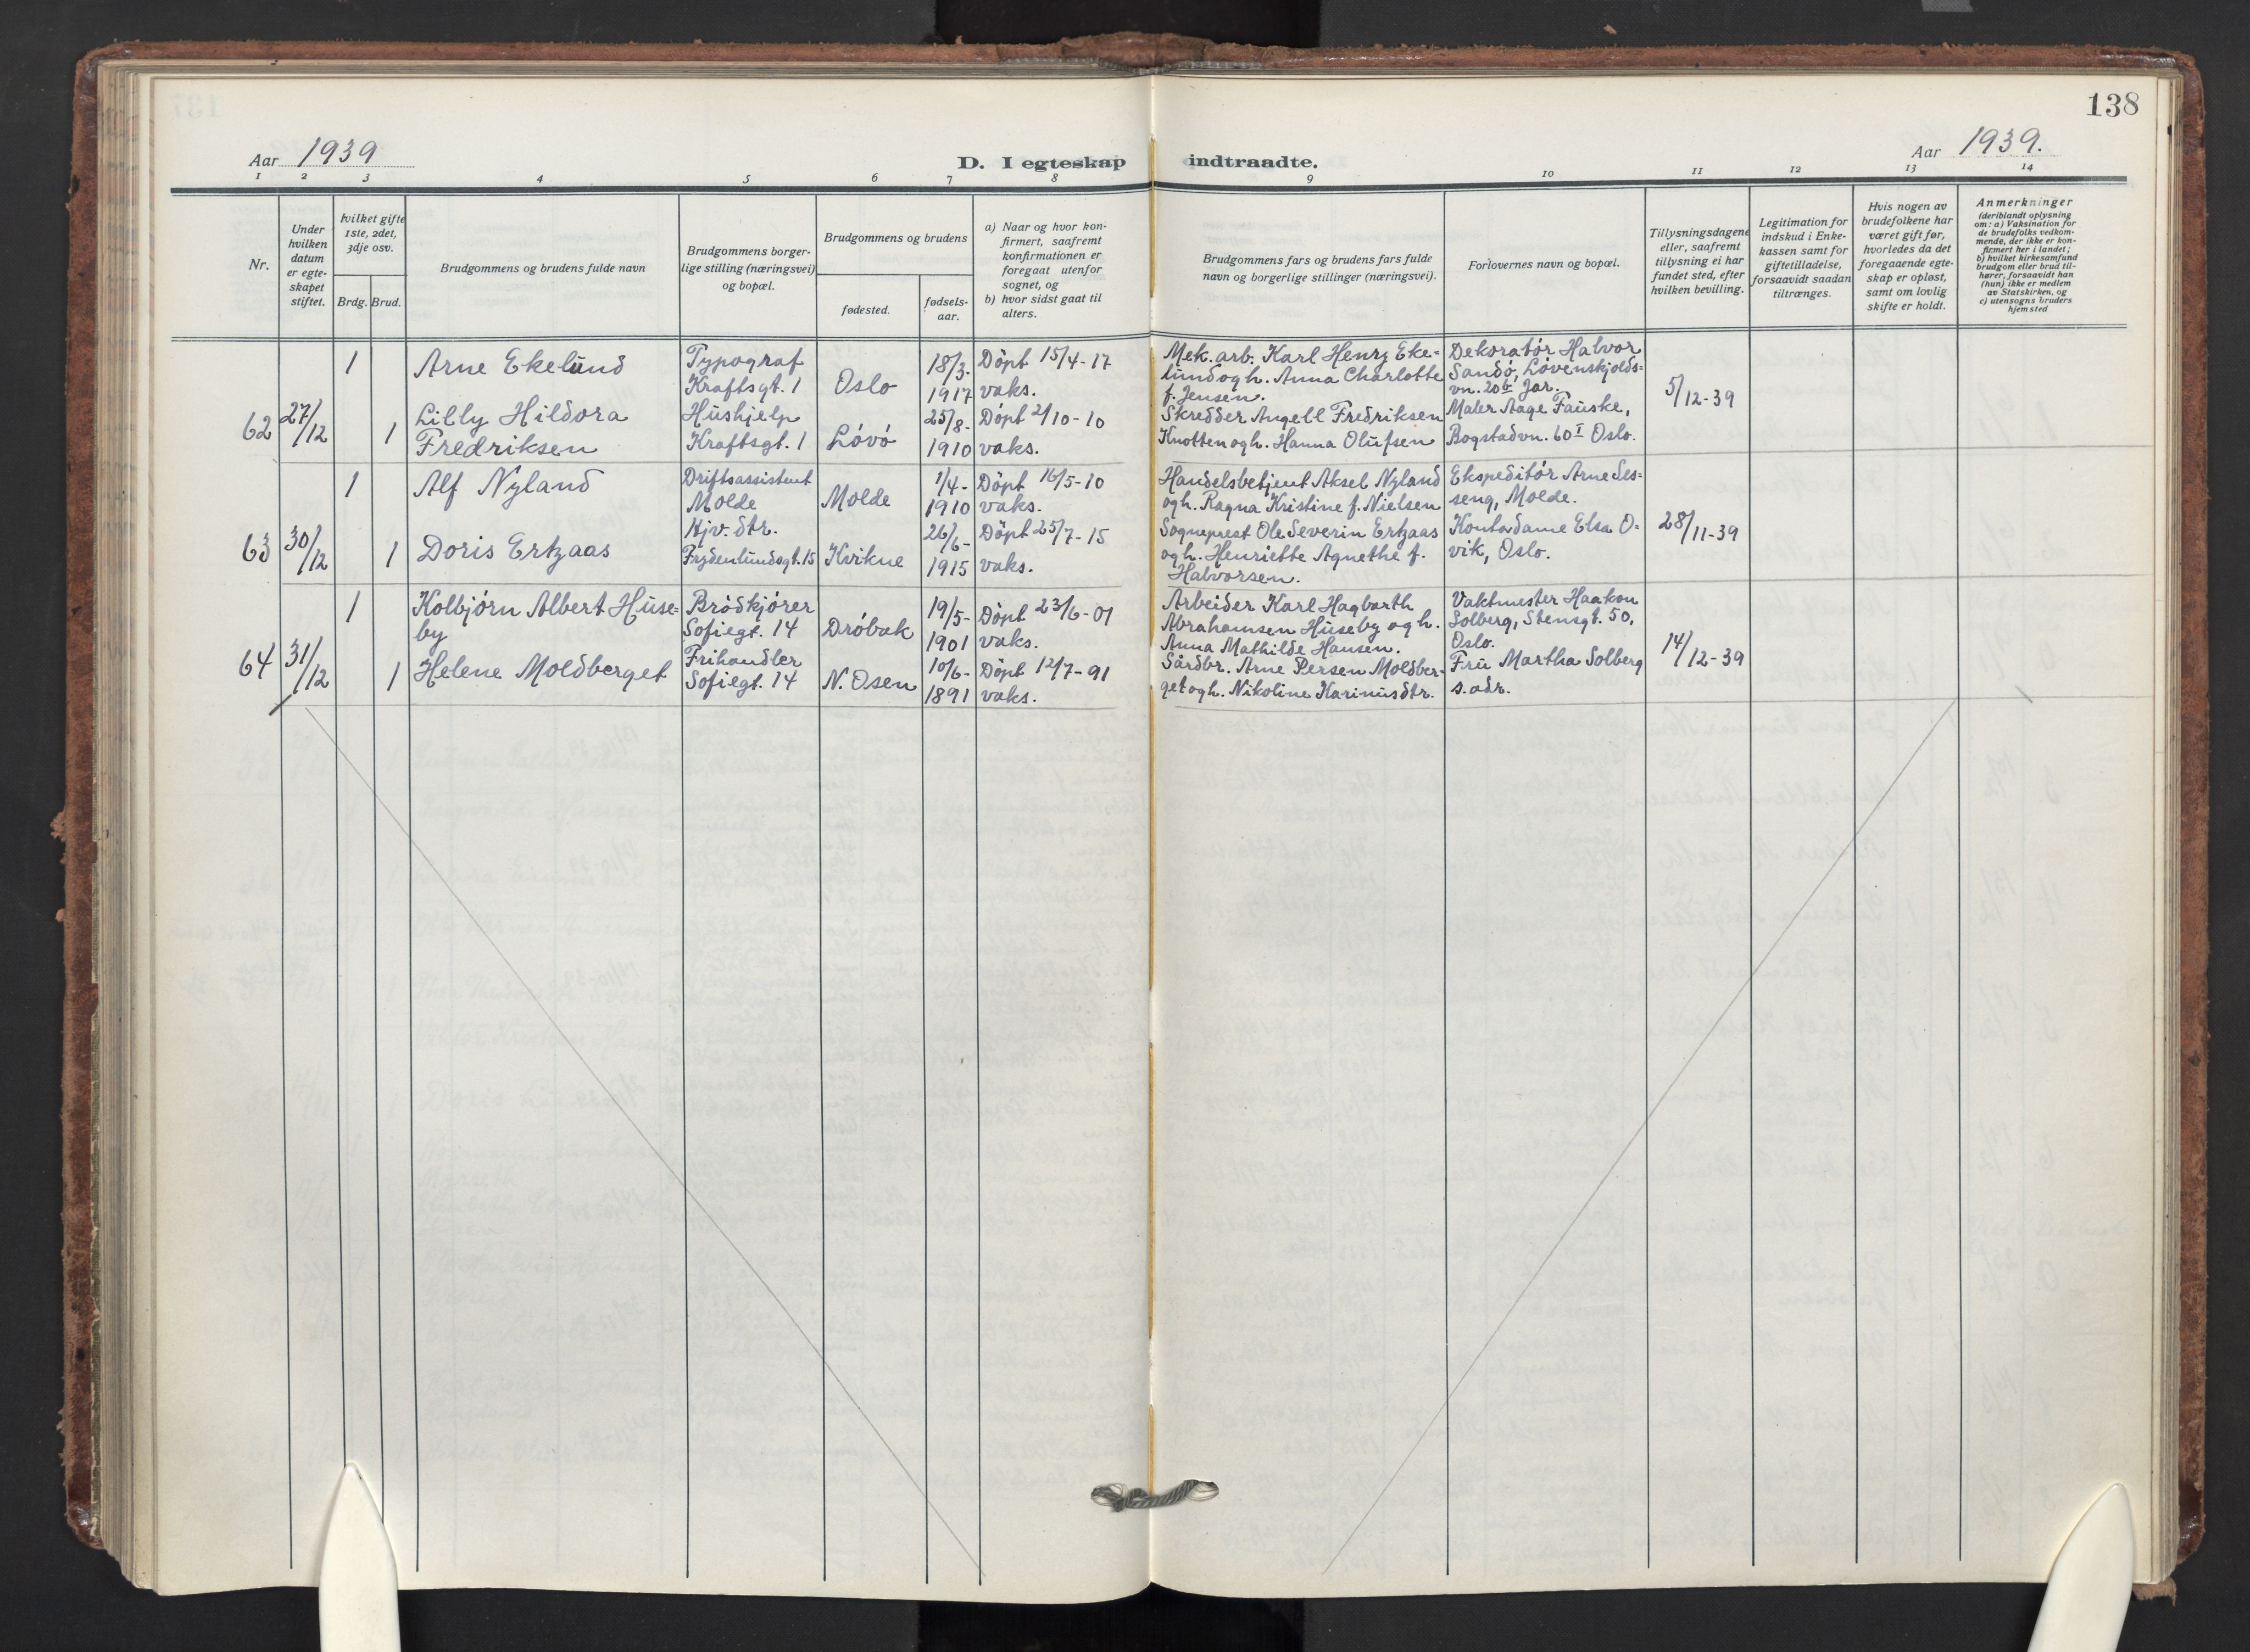 138
Aar 1939
D. I egteskap indtraadte.
Aar 1939.
1 2 3 4 5 6 7 8 9 10 11 12 13 14
Nr.
Under
hvilken
datum
er egte-
skapet
stiftet.
hvilket gifte
1ste, 2det,
3dje osv.
Brdg. Brud.
Brudgommens og brudens fulde navn
Brudgommens borger-
lige stilling (næringsvei)
og bopæl.
Brudgommens og brudens
fødested.
fødsels-
aar.
a) Naar og hvor kon-
firmert, saafremt
konfirmationen er
foregaat utenfor
sognet, og
b) hvor sidst gaat til
alters.
Brudgommens fars og brudens fars fulde
navn og borgerlige stillinger (næringsvei).
Forlovernes navn og bopæl.
Tillysningsdagene
eller, saafremt
tillysning ei har
fundet sted, efter
hvilken bevilling.
Legitimation for
indskud i Enke-
kassen samt for
giftetilladelse,
forsaavidt saadan
tiltrænges.
Hvis nogen av
brudefolkene har
været gift før,
hvorledes da det
foregaaende egte-
skap er opløst,
samt om lovlig
skifte er holdt.
Anmerkninger
(deriblandt oplysning
om: a) Vaksination for
de brudefolks vedkom-
mende, der ikke er kon-
firmert her i landet;
b) hvilket kirkesamfund
brudgom eller brud til-
hører, forsaavidt han
(hun) ikke er medlem
av Statskirken, og
c) utensogns bruders
hjemsted
62
27/12
1
Arne Ekelund
Typograf
Kraftsgt. 1
Oslo
18/3-
1917
Döpt 15/4-17
vaks.
Mek. arb. Karl Henry Eke=
lund og h. Anna Charlotte
f. Jensen.
Dekoratör Halvor
Sandö, Lövenskjolds=
vn. 20b Jar.
5/12-39
1
Lilly Hildora
Fredriksen
Hushjelp
Kraftsgt. 1
Lövö
25/8-
1910
Döpt 2/10-10
vaks.
Skredder Angell Fredriksen
Knotten og h. Hanna Olufsen
Maler Aage Fauske,
Bogstadvn. 60 I Oslo.
63
30/12
1
Alf Nyland
Driftsassistent
Molde
Molde
1/4-
1910
Döpt 16/5-10
vaks.
Handelsbetjent Aksel Nyland
og h. Ragna Kristine f. Nielsen
Ekspeditör Arne Ses=
seng, Molde.
28/11-39
1
Doris Ertzaas
Hjv. dtr.
Frydenlundsgt. 15
Kvikne
26/6-
1915
Döpt 25/7-15
vaks.
Sogneprest Ole Severin Ertzaas
og h. Henriette Agnethe f.
Halvorsen.
Kontordame Elsa O=
vik, Oslo.
64
31/12
1
Kolbjörn Albert Huse=
by
Brödkjörer
Sofiegt. 14
Dröbak
19/5-
1901
Döpt 23/6-01
vaks.
Arbeider Karl Hagbarth
Abrahamsen Huseby og h.
Anna Mathilde Hansen.
Vaktmester Haakon
Solberg, Stensgt. 50,
Oslo.
14/12-39
1
Helene Moldberget
Frihandler
Sofiegt. 14
N. Osen
10/6-
1891
Döpt 12/7-91
vaks.
Gårdbr. Arne Persen Moldber-
get og h. Nikoline Karinusdtr.
Fru Martha Solberg
s. adr.